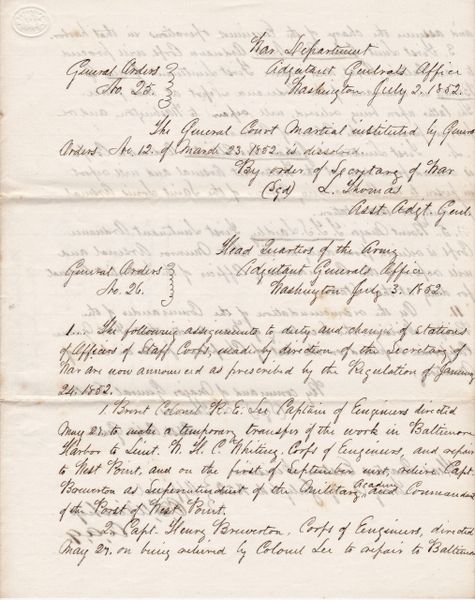 War Department
General Orders Adjutant General's Office
No. 25. Washington July 2. 1852.
The General Court Martial instituted by General
Orders No. 12. of March 23. 1852 is dissolved.
By order of Secretary of War
(Sgd) L. Thomas
Asst. Adgt. Genl.
Head Quarters of the Army
General Orders Adjutant General's Office
No. 26. Washington July 3. 1852.
1... The following assignments to duty and change of stations
of Officers of Staff Corps, made by direction of the Secretary of
War are now announced as prescribed by the Regulation of January
24. 1852.
1. Brevt Colonel R. E. Lee Captain of Engineers directed
May 27 to make a temporary transfer of the work in Baltimore
Harbor to Lieut. W. H. C. Whiting, Corps of Engineers, and repair
to West Point, and on the first of September next, relieve Capt.
Brewerton as Superintendent of the Military Academy and Command
of the Post of West Point.
2. Capt. Henry Brewerton, Corps of Engineers, directed
May 27. on being relieved by Colonel Lee to repair to Baltimore